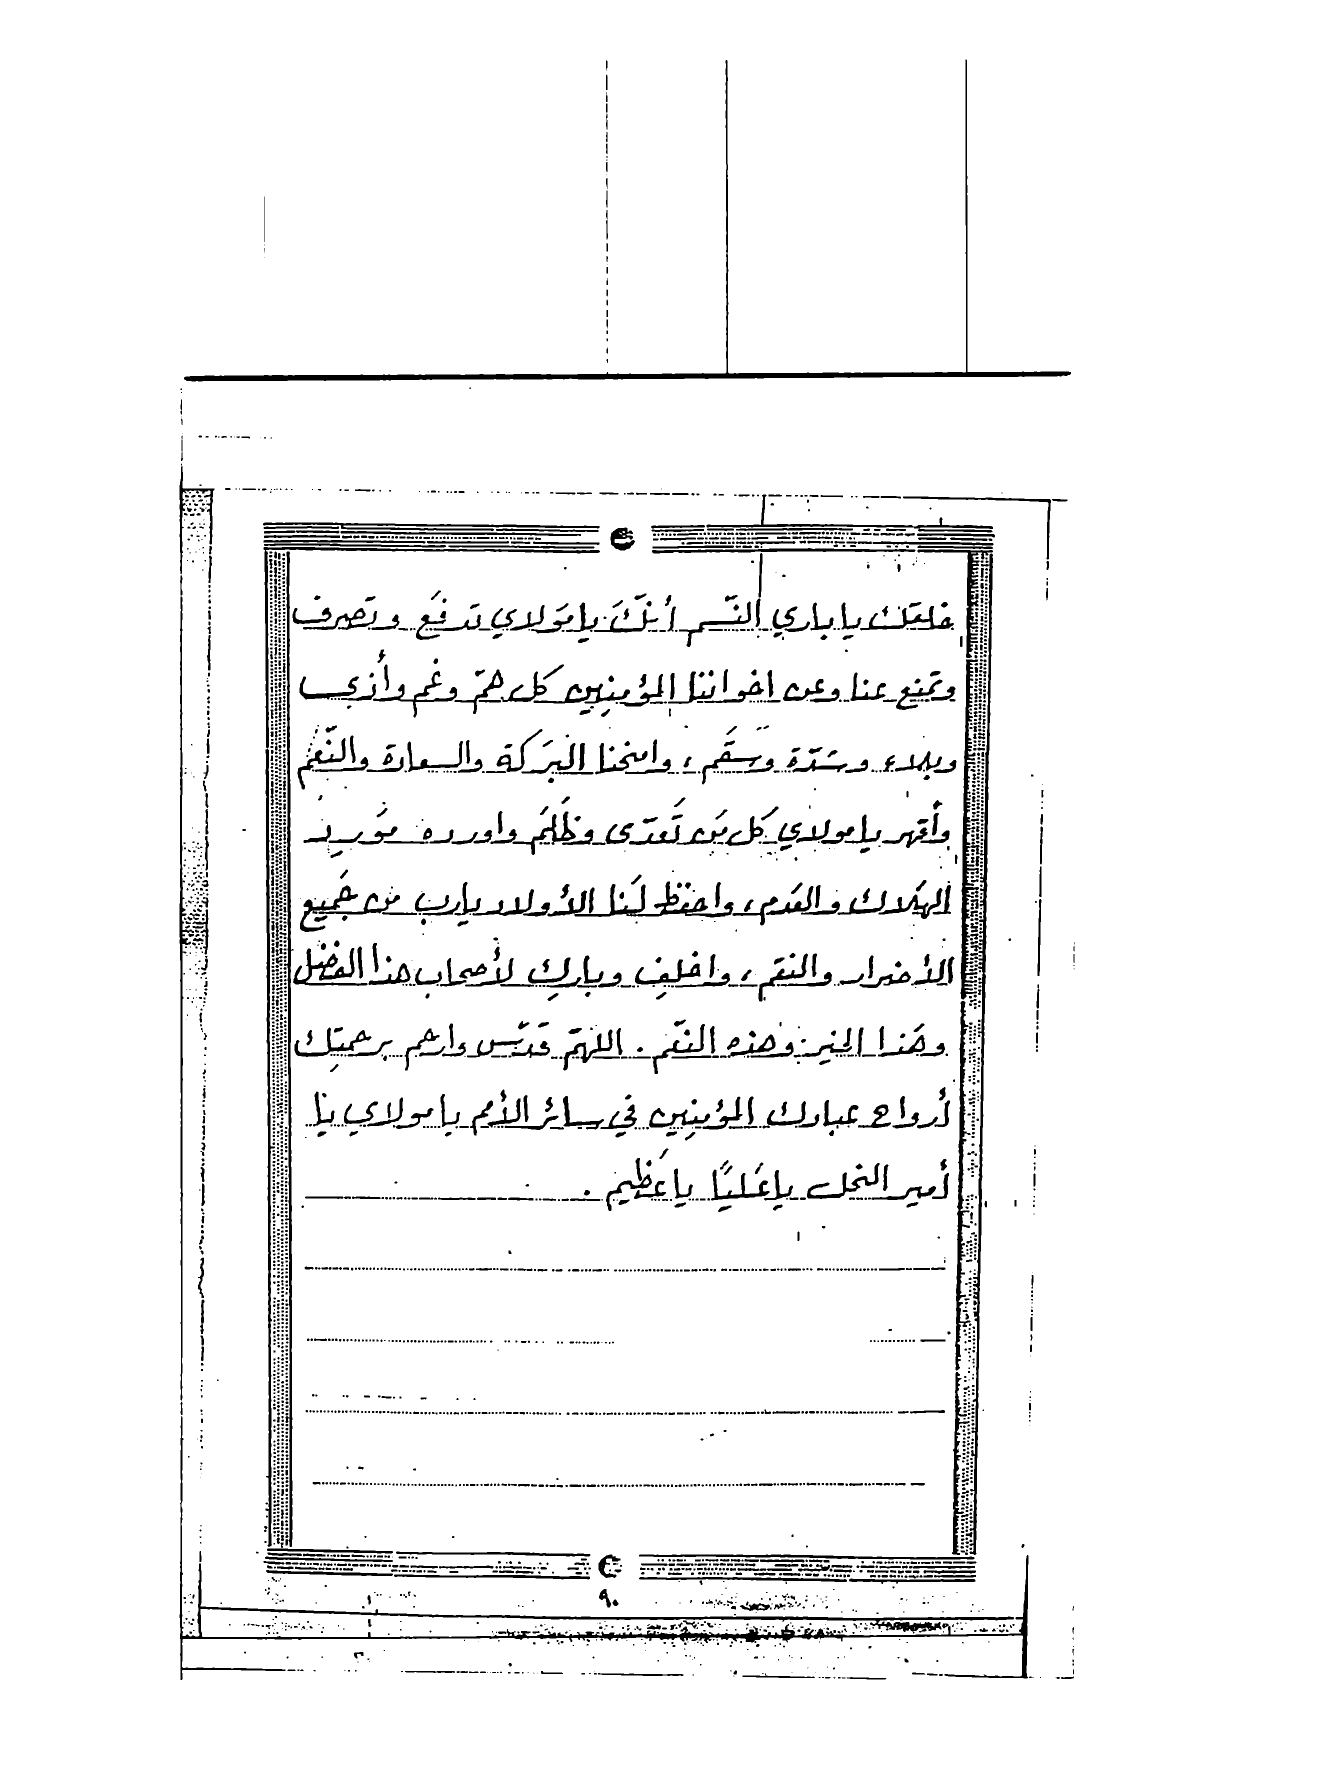 خلقك يا باري النّسم أنّكَ يا مَولاي تدفَع وتصرف
وتمنع عنا وعن اخواننا المؤمِنِين كل همّ وغم وأذى
وبلاء وشدّة وسَقَم، وامنحنا البَركة والسعادة والنّعَم
وأقهر يا مولاي كل مَن تَعدّى وظَلَمَ واورده مَورِد
الهَلاك والعَدم، واحفظ لَنا الأولاد يارب من جَميع
الأضرار والنقم، واخلف وبارك لأصحاب هذا الفضل
وهَذا الخير وهذه النعَم. اللهمّ قَدّس وارحم برحمتِك
أرواح عبادك المؤمنِين في سائر الأمم يا مولاي يا
أمير النحل يا عَليًّا يا عَظيم.
٩٠